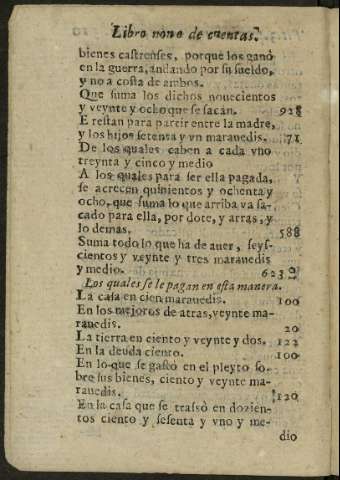 Libro nono de cuentas.
bienes castrenses, porque los ganò
en la guerra, andando por su sueldo,
y no a costa de ambos.
Que suma los dichos nouecientos
y veynte y ocho que se sacan. 928
E restan para partir entre la madre,
y los hijos setenta y vn marauedis. 71
De los quales caben a cada vno
treynta y cinco y medio
A los quales para ser ella pagada,
se acrecen quinientos y ochenta y
ocho, que suma lo que arriba va sa-
cado para ella, por dote, y arras, y
lo demas. 588
Suma todo lo que ha de auer, seys-
cientos y veynte y tres marauedis
y medio. 623
Los quales se le pagan en esta manera.
La casa en cien marauedis. 100
En los mejoros de atras, veynte ma-
rauedis. 20
La tierra en ciento y veynte y dos. 122
En la deuda ciento. 100
En lo que se gastò en el pleyto so-
bre sus bienes, ciento y veynte ma-
rauedis. 120
En la casa que se trassò en dozien-
tos ciento y sesenta y vno y me-
dio